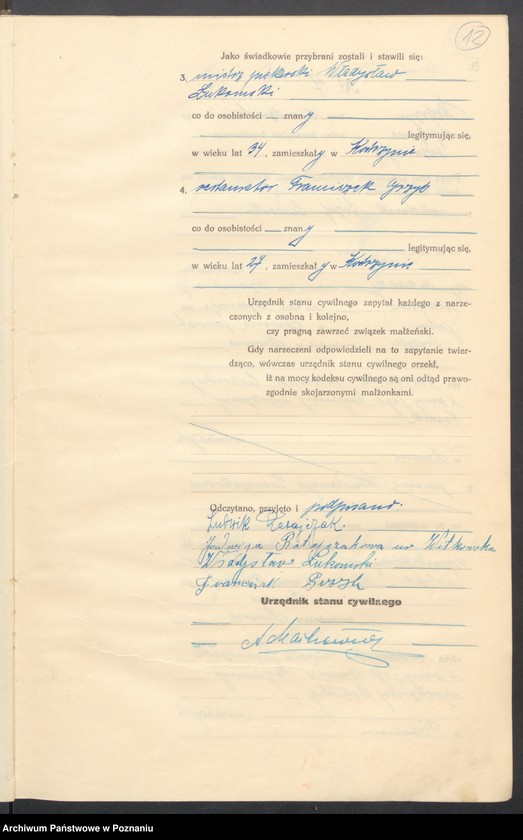 12
Jako świadkowie przybrani zostali i stawili się:
3. mistrz piekarski Władysław
Łukomski
co do osobistości znany
legitymując się,
w wieku lat 34, zamieszkały w
4. restaurator Franciszek Grzyb
co do osobistości znany
legitymując się,
w wieku lat 27, zamieszkały w
Urzędnik stanu cywilnego zapytał każdego z narze-
czonych z osobna i kolejno,
czy pragną zawrzeć związek małżeński.
Gdy narzeczeni odpowiedzieli na to zapytanie twier-
dząco, wówczas urzędnik stanu cywilnego orzekł,
iż na mocy kodeksu cywilnego są oni odtąd prawo-
zgodnie skojarzonymi małżonkami.
Odczytano, przyjęto i podpisano.
Ludwik
Jadwiga Ratajczakowa ur. Witkowska
Władysław Łukomski
Franciszek
Urzędnik stanu cywilnego
Archiwum Państwowe w Poznaniu